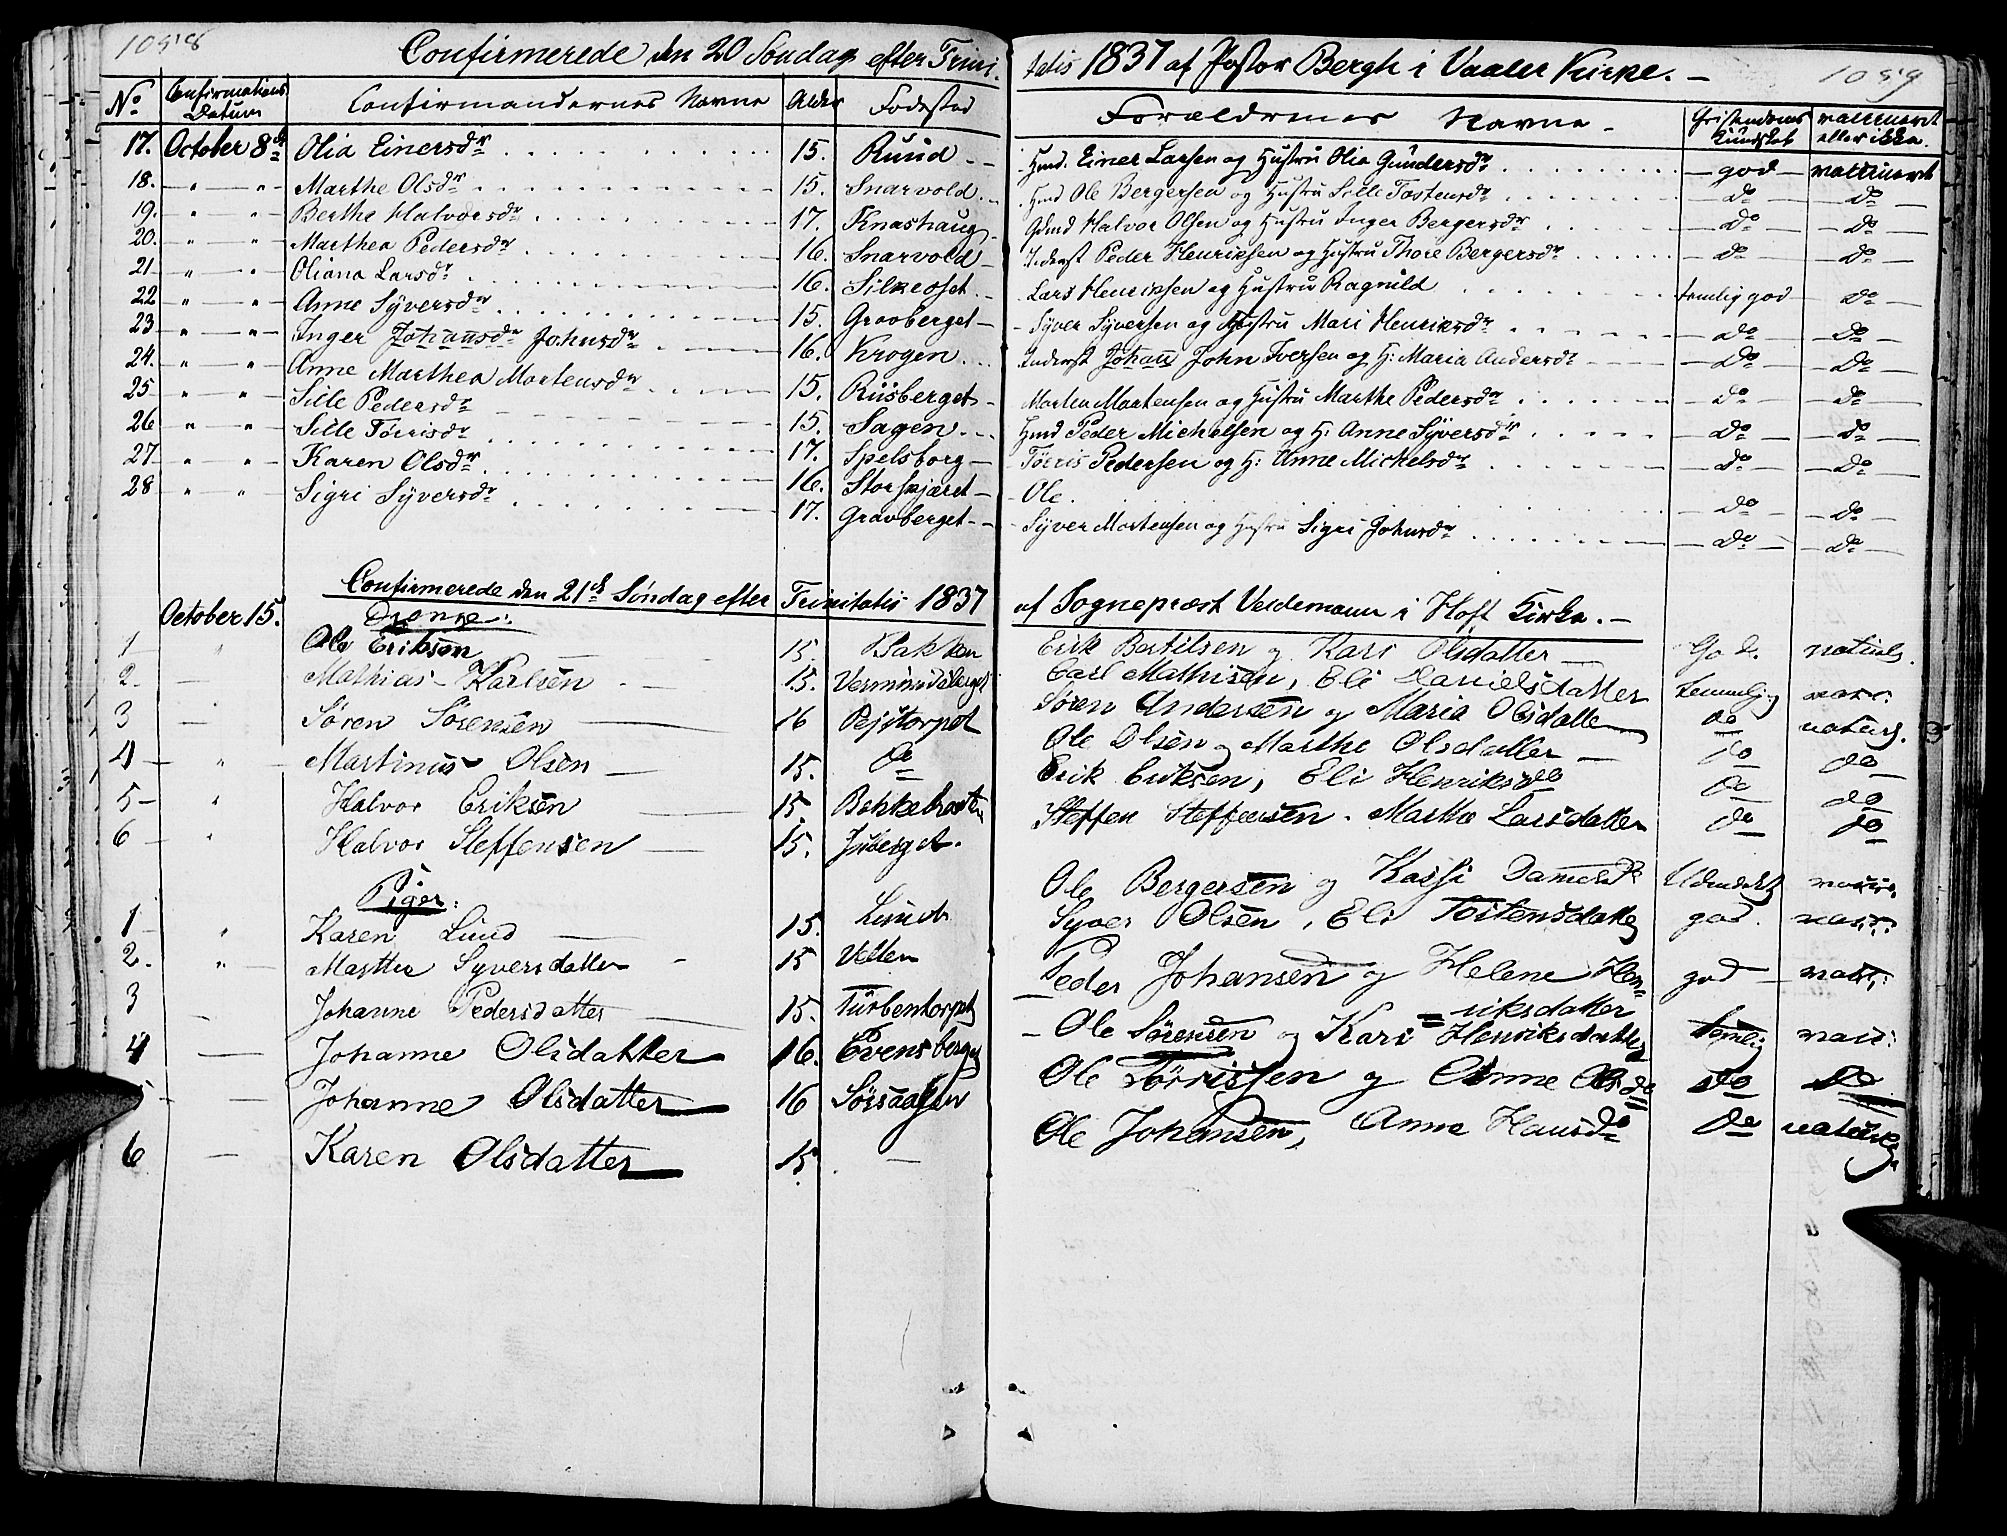 1058
Confirmerede den 20 Søndag efter Trini-
tatis 1837 af Pastor Bergh i Vaaler Kirke. -
1059
No Confirmations Datum Confirmandernes Navne Alder Fødested Forældrenes Navne - Christendoms Kundskab vaccineret eller ikke.
17. October 8de Olia Einersdr 15. Ruud Hmd. Einer Larsen og Hustru Olia Gundersdr god vaccineret
18. " " Marthe Olsdr 15. Snarvold Hmd Ole Bergersen og Hustru Sille Tostensdr do do
19. " " Berthe Halvorsdr 17. Knashaug Gdmd Halvor Olsen og Hustru Inger Bergersdr do do
20. " " Marthea Pedersdr 16. Snarvold Inderst Peder Henriksen og Hustru Thore Bergersdr do do
21 " " Oliana Larsdr 16. Silkeoset Lars Henriksen og Hustru Ragnild temlig god do
22 " " Anne Syversdr 15. Gravberget Syver Syversen og Hustru Mari Henriksdr do do
23 " " Inger Johansdr Johnsdr 16. Krogen Inderst Johan John Iversen og H: Maria Andersdr do do
24. " " Anne Marthea Mortensdr 15. Riisberget Morten Mortensen og Hustru Marthe Pedersdr do do
25 " " Sille Pedersdr 15. Sagen Hmd Peder Michelsen og H: Anne Syversdr do do
26 " " Sille Tørrisdr 17. Spelsborg Tørris Pedersen og H: Anne Mickelsdr do do
27 " " Karen Olsdr 16. Storskjæret Ole. do do
28 " " Sigri Syversdr 17. Gravberget Syver Mortensen og Hustru Sigri Johnsdr do do
Confirmerede den 21de Søndag efter Trinitatis 1837 af Sogneprest Veidemann i Hoff Kirke. -
October 15. Drenge:
1 " Ole Eriksen 15. Bakken Erik Bertilsen og Kari Olsdatter God. naturl.
2. Mathias Karlsen 15. Vermundsberget Carl Mathisen, Eli Danielsdatter temmelig vacc:
3 " Søren Sørensen 16 Pejstorpet Søren Andersen og Maria Olsdatter do naturl.
4 " Martinus Olsen 15. do Ole Olsen og Marthe Olsdatter do do
5 " Halvor Eriksen 15. Erik Eriksen, Eli Henriksdr do do
6 " Halvor Steffensen 15. Juberget. Steffen Steffensen. Marthe Larsdatter do do
Piger:
1 " Karen Lund 15. Lund Ole Bergersen og Kassi Danielsdr Udmærket vaccin.
2. " Marthea Syversdatter 15 Velten Syver Olsen, Eli Tostensdatter god. vacc:
3 Johanne Pedersdatter 15. Turbentorpet Peder Johansen og Helene Hen-
riksdatter god vacc:
4 Johanne Olsdatter 16. Evensberget Ole Sørensen og Kari Henriksdatter temlig vacc:
5 Johanne Olsdatter 16 Sørsaassen Ole Tørrissen og Anne Olsdr do do
6 Karen Olsdatter 15. Ole Johansen, Anne Hansdr do naturl.